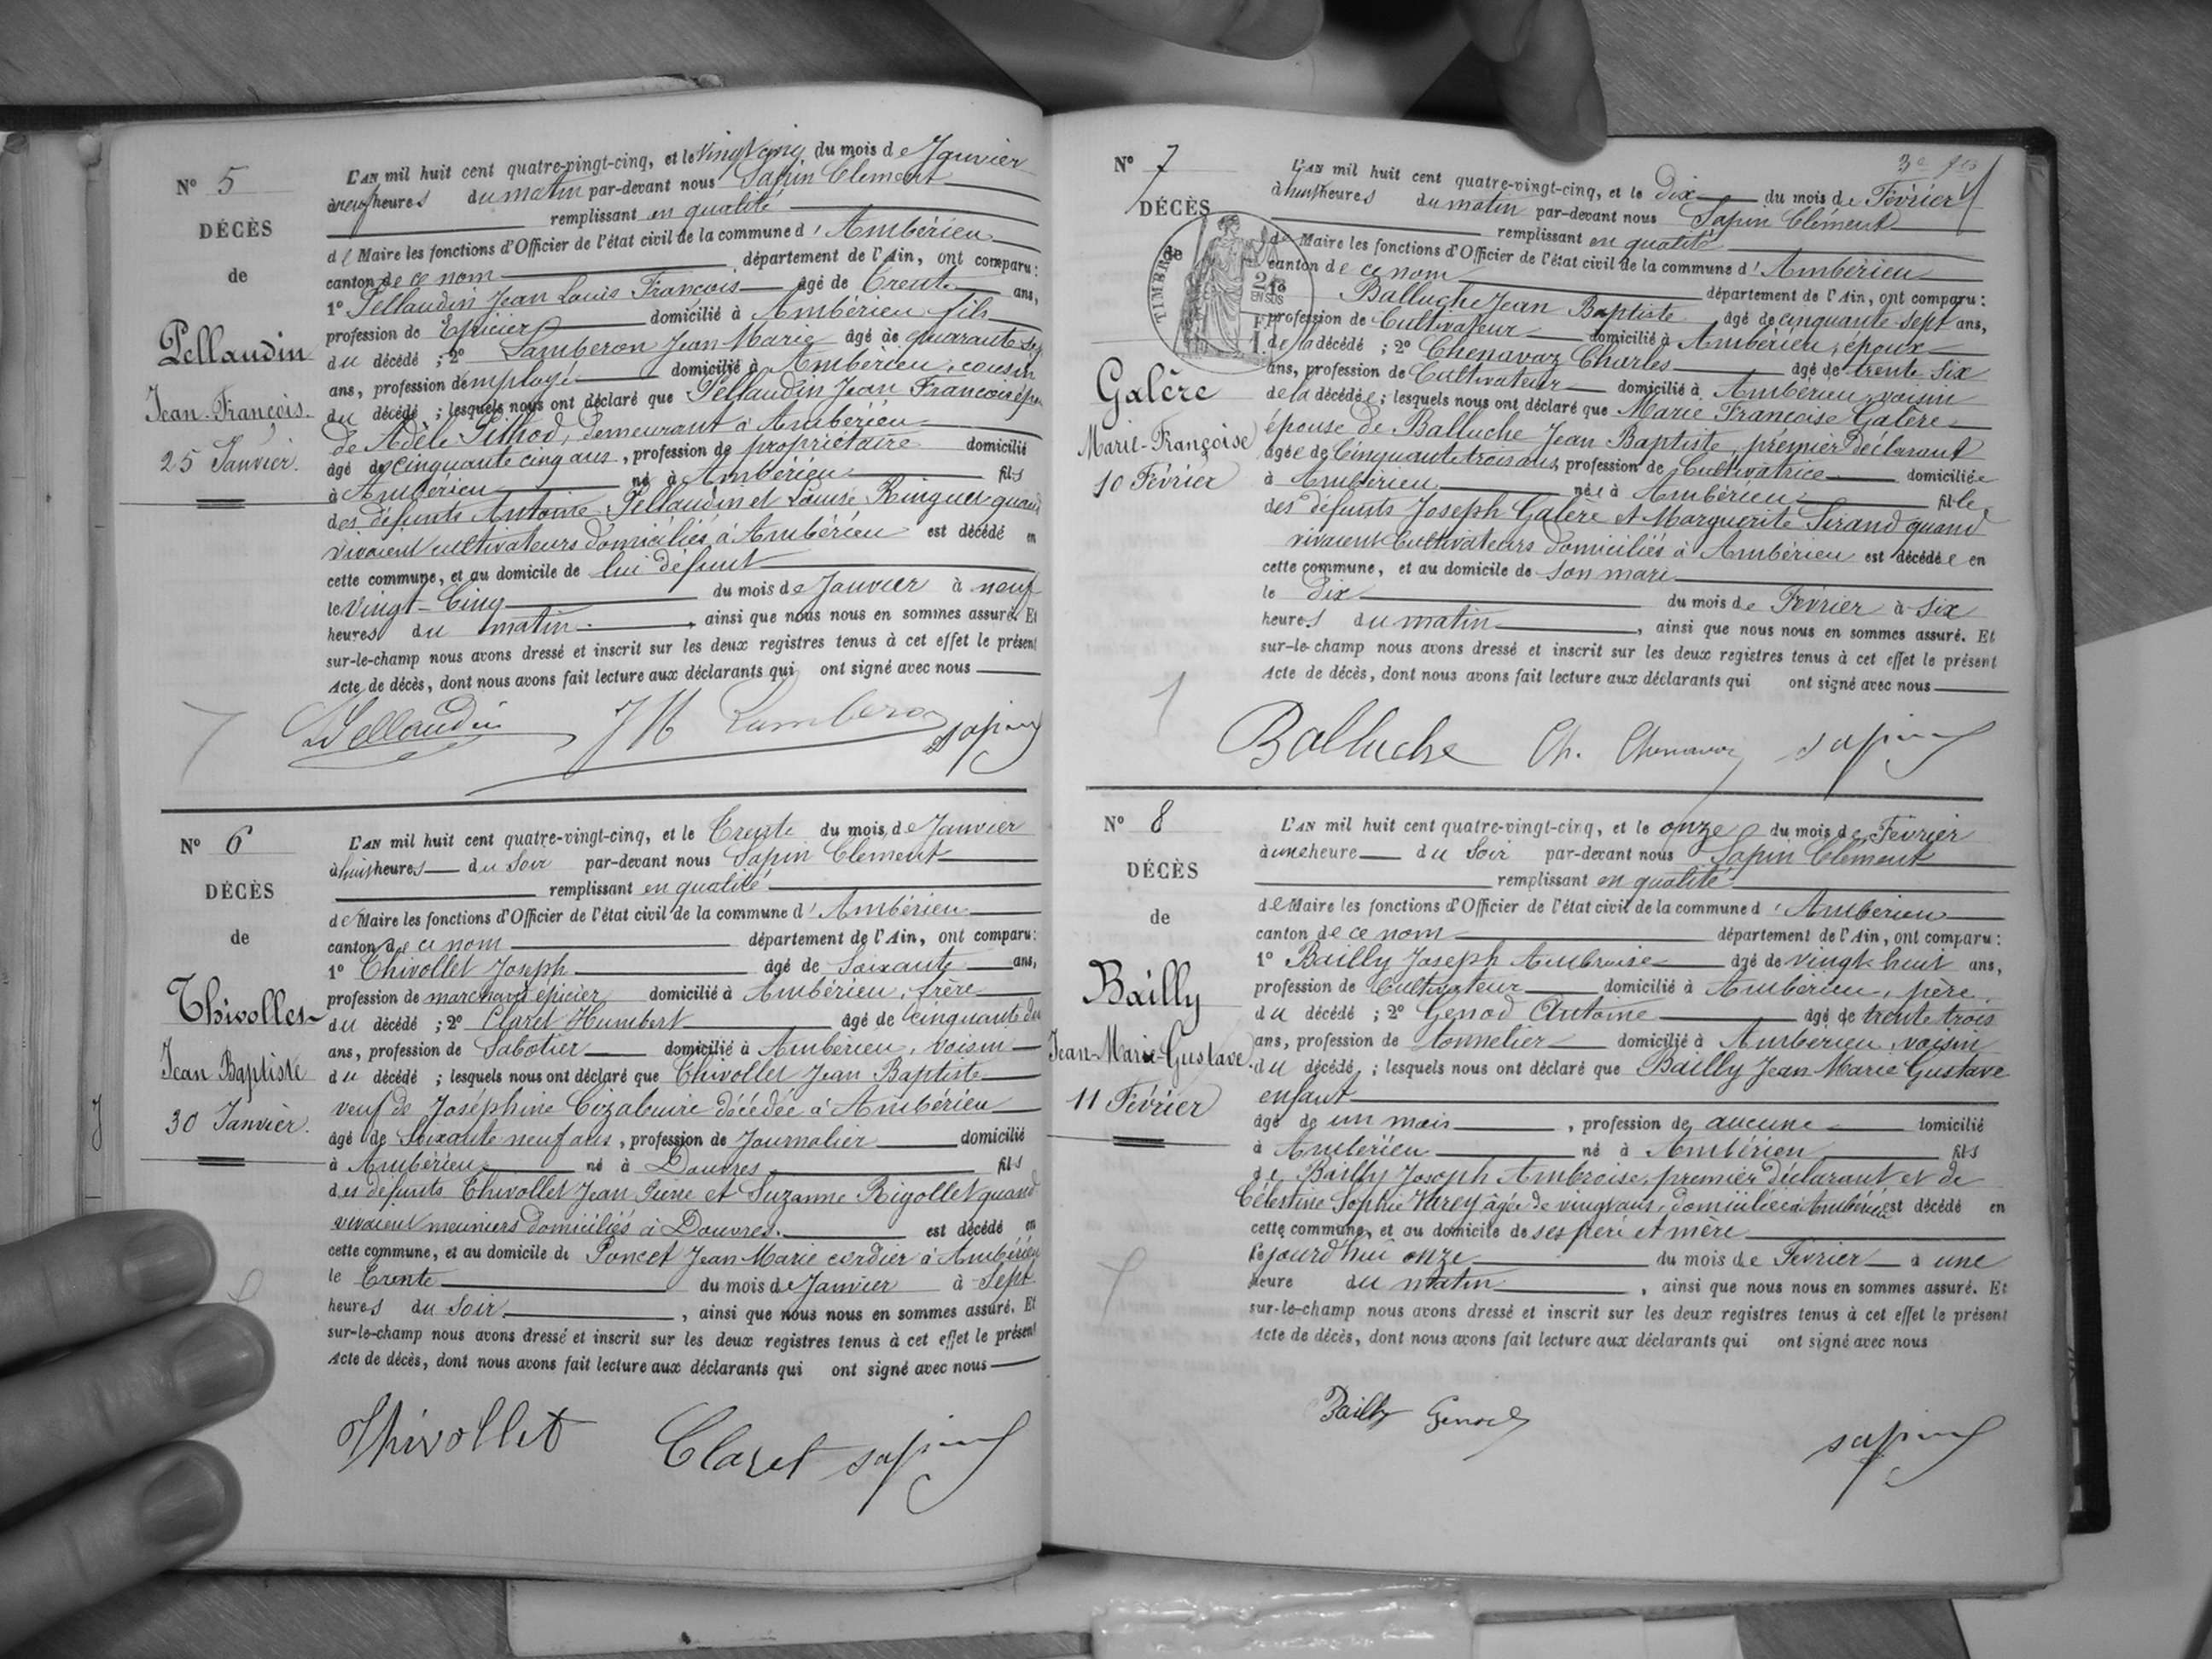 N° 5
DÉCÈS
de
Pellaudin
Jean-François.
25 Janvier.
L'AN mil huit cent quatre-vingt-cinq, et le Vingt cinq du mois de Janvier
à neuf heures du matin par-devant nous Sapin Clément
remplissant en qualité
de Maire les fonctions d'Officier de l'état civil de la commune d'Ambérieu
canton de ce nom département de l'Ain, ont comparu:
1° Pellaudin Jean Louis François âgé de Trente ans,
profession de Epicier domicilié à Ambérieu fils
du décédé ; 2° Lamberon Jean Marie âgé de quarante
ans, profession d'employé domicilié à Ambérieu, cousin
du décédé ; lesquels nous ont déclaré que Pellaudin Jean François
de Adèle Pilhod, demeurant à Ambérieu
âgé de cinquante cinq ans, profession de propriétaire domicilié
à Ambérieu né à Ambérieu fils
des défunts Antoine Pellaudin et Louise Ringuet quand
vivaient cultivateurs domiciliés à Ambérieu est décédé en
cette commune, et au domicile de lui défunt
le Vingt-Cinq du mois de Janvier à neuf
heures du matin. , ainsi que nous nous en sommes assuré. Et
sur-le-champ nous avons dressé et inscrit sur les deux registres tenus à cet effet le présent
Acte de décès, dont nous avons fait lecture aux déclarants qui ont signé avec nous
Pellaudin JM Lamberon Sapin
N° 6
DÉCÈS
de
Thivollet
Jean Baptiste
30 Janvier.
L'AN mil huit cent quatre-vingt-cinq, et le Trente du mois de Janvier
à huit heures du Soir par-devant nous Sapin Clément
remplissant en qualité
de Maire les fonctions d'Officier de l'état civil de la commune d'Ambérieu
canton de ce nom département de l'Ain, ont comparu:
1° Thivollet Joseph âgé de Soixante ans,
profession de marchand épicier domicilié à Ambérieu, frère
du décédé ; 2° Claret Humbert âgé de cinquante
ans, profession de Sabotier domicilié à Ambérieu, voisin
du décédé ; lesquels nous ont déclaré que Thivollet Jean Baptiste
veuf de Joséphine Cozabuire décédée à Ambérieu
âgé de Soixante neuf ans, profession de Journalier domicilié
à Ambérieu né à Douvres fils
des défunts Thivollet Jean Pierre et Suzanne Rigollet quand
vivaient meuniers domiciliés à Douvres. est décédé en
cette commune, et au domicile de Poncet Jean Marie cordier à Ambérieu
le Trente du mois de Janvier à Sept
heures du Soir , ainsi que nous nous en sommes assuré. Et
sur-le-champ nous avons dressé et inscrit sur les deux registres tenus à cet effet le présent
Acte de décès, dont nous avons fait lecture aux déclarants qui ont signé avec nous
Thivollet Claret Sapin
N° 7
DÉCÈS
de
TIMBRE
Galère
Marie-Françoise
10 Février
L'AN mil huit cent quatre-vingt-cinq, et le Dix du mois de Février
à huit heures du matin par-devant nous Sapin Clément
remplissant en qualité
de Maire les fonctions d'Officier de l'état civil de la commune d'Ambérieu
canton de ce nom département de l'Ain, ont comparu:
1° Balluche Jean Baptiste âgé de cinquante-sept ans,
profession de Cultivateur domicilié à Ambérieu, époux
de la décédé ; 2° Chenavaz Charles âgé de trente six
ans, profession de Cultivateur domicilié à Ambérieu, voisin
de la décédée ; lesquels nous ont déclaré que Marie Françoise Galère
épouse de Balluche Jean Baptiste, premier déclarant
âgée de Cinquante trois ans, profession de Cultivatrice domiciliée
à Ambérieu née à Ambérieu fille
des défunts Joseph Galère et Marguerite Sirand quand
vivaient Cultivateurs domiciliés à Ambérieu est décédée en
cette commune, et au domicile de son mari
le Dix du mois de Février à six
heures du matin , ainsi que nous nous en sommes assuré. Et
sur-le-champ nous avons dressé et inscrit sur les deux registres tenus à cet effet le présent
Acte de décès, dont nous avons fait lecture aux déclarants qui ont signé avec nous
Balluche Ch. Chenavaz Sapin
N° 8
DÉCÈS
de
Bailly
Jean-Marie-Gustave.
11 Février
L'AN mil huit cent quatre-vingt-cinq, et le onze du mois de Février
à une heure du Soir par-devant nous Sapin Clément
remplissant en qualité
de Maire les fonctions d'Officier de l'état civil de la commune d'Ambérieu
canton de ce nom département de l'Ain, ont comparu:
1° Bailly Joseph Ambroise âgé de vingt huit ans,
profession de Cultivateur domicilié à Ambérieu, père
du décédé ; 2° Genod Antoine âgé de trente trois
ans, profession de tonnelier domicilié à Ambérieu, voisin
du décédé ; lesquels nous ont déclaré que Bailly Jean Marie Gustave
enfant
âgé de un mois , profession de aucune domicilié
à Ambérieu né à Ambérieu fils
de Bailly Joseph Ambroise, premier déclarant et de
Célestine Sophie Varey âgée de vingt ans, domiciliée à Ambérieu est décédé en
cette commune, et au domicile de ses père et mère
Cejourd'hui onze du mois de Février à une
heure du matin , ainsi que nous nous en sommes assuré. Et
sur-le-champ nous avons dressé et inscrit sur les deux registres tenus à cet effet le présent
Acte de décès, dont nous avons fait lecture aux déclarants qui ont signé avec nous
Bailly Genod Sapin